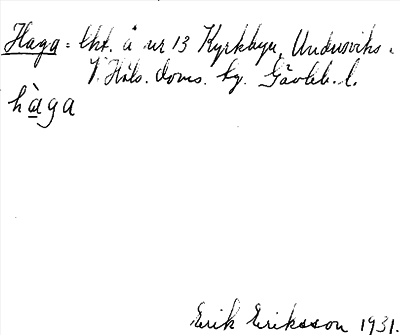 Haga = lht. å nr 13 Kyrkbyn, Undersviks.
V. Häls. doms. hg. Gävleb. l.
hàga
Erik Eriksson 1931.